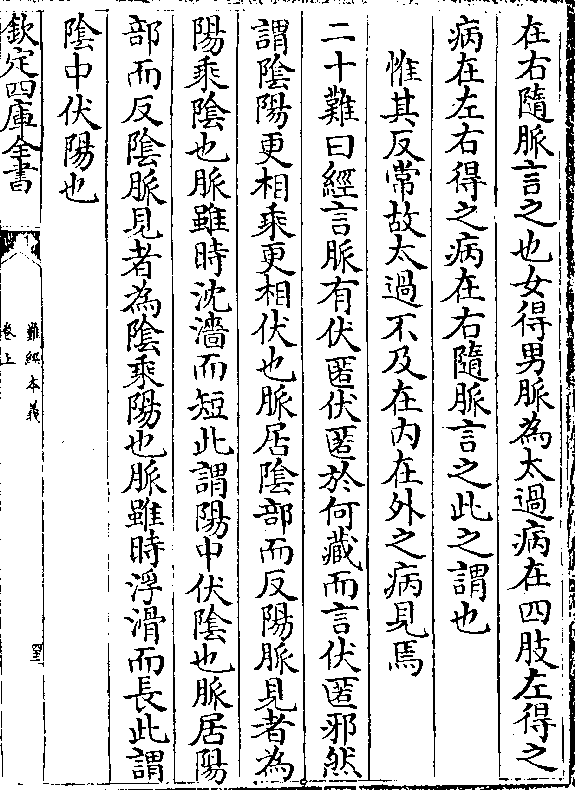 在右隨脈言之也女得男脈為太過病在四肢左得之
病在左右得之病在右隨脈言之此之謂也
惟其反常故太過不及在内在外之病見焉
二十難曰經言脈有伏匿伏匿於何藏而言伏匿邪然
謂陰陽更相乘更相伏也脈居陰部而反陽脈見者為
陽乘陰也脈雖時沈濇而短此謂陽中伏陰也脈居陽
部而反陰脈見者為陰乘陽也脈雖時浮滑而長此謂
陰中伏陽也
欽定四庫全書
難經本義
卷上